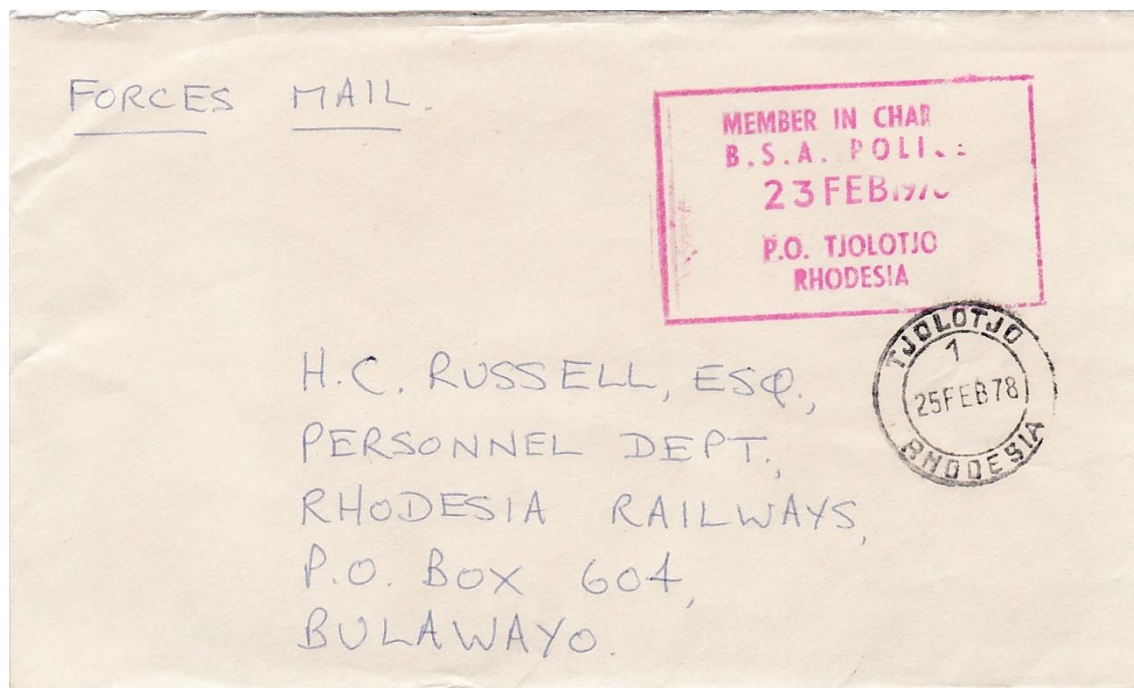 FORCES MAIL.
MEMBER IN CHAR
B.S.A. POLI
23 FEB
P.O. TJOLOTJO
RHODESIA
TJOLOTJO
1
25 FEB 78
RHODESIA
H.C. RUSSELL, ESQ.,
PERSONNEL DEPT.,
RHODESIA RAILWAYS,
P.O. BOX 604,
BULAWAYO.